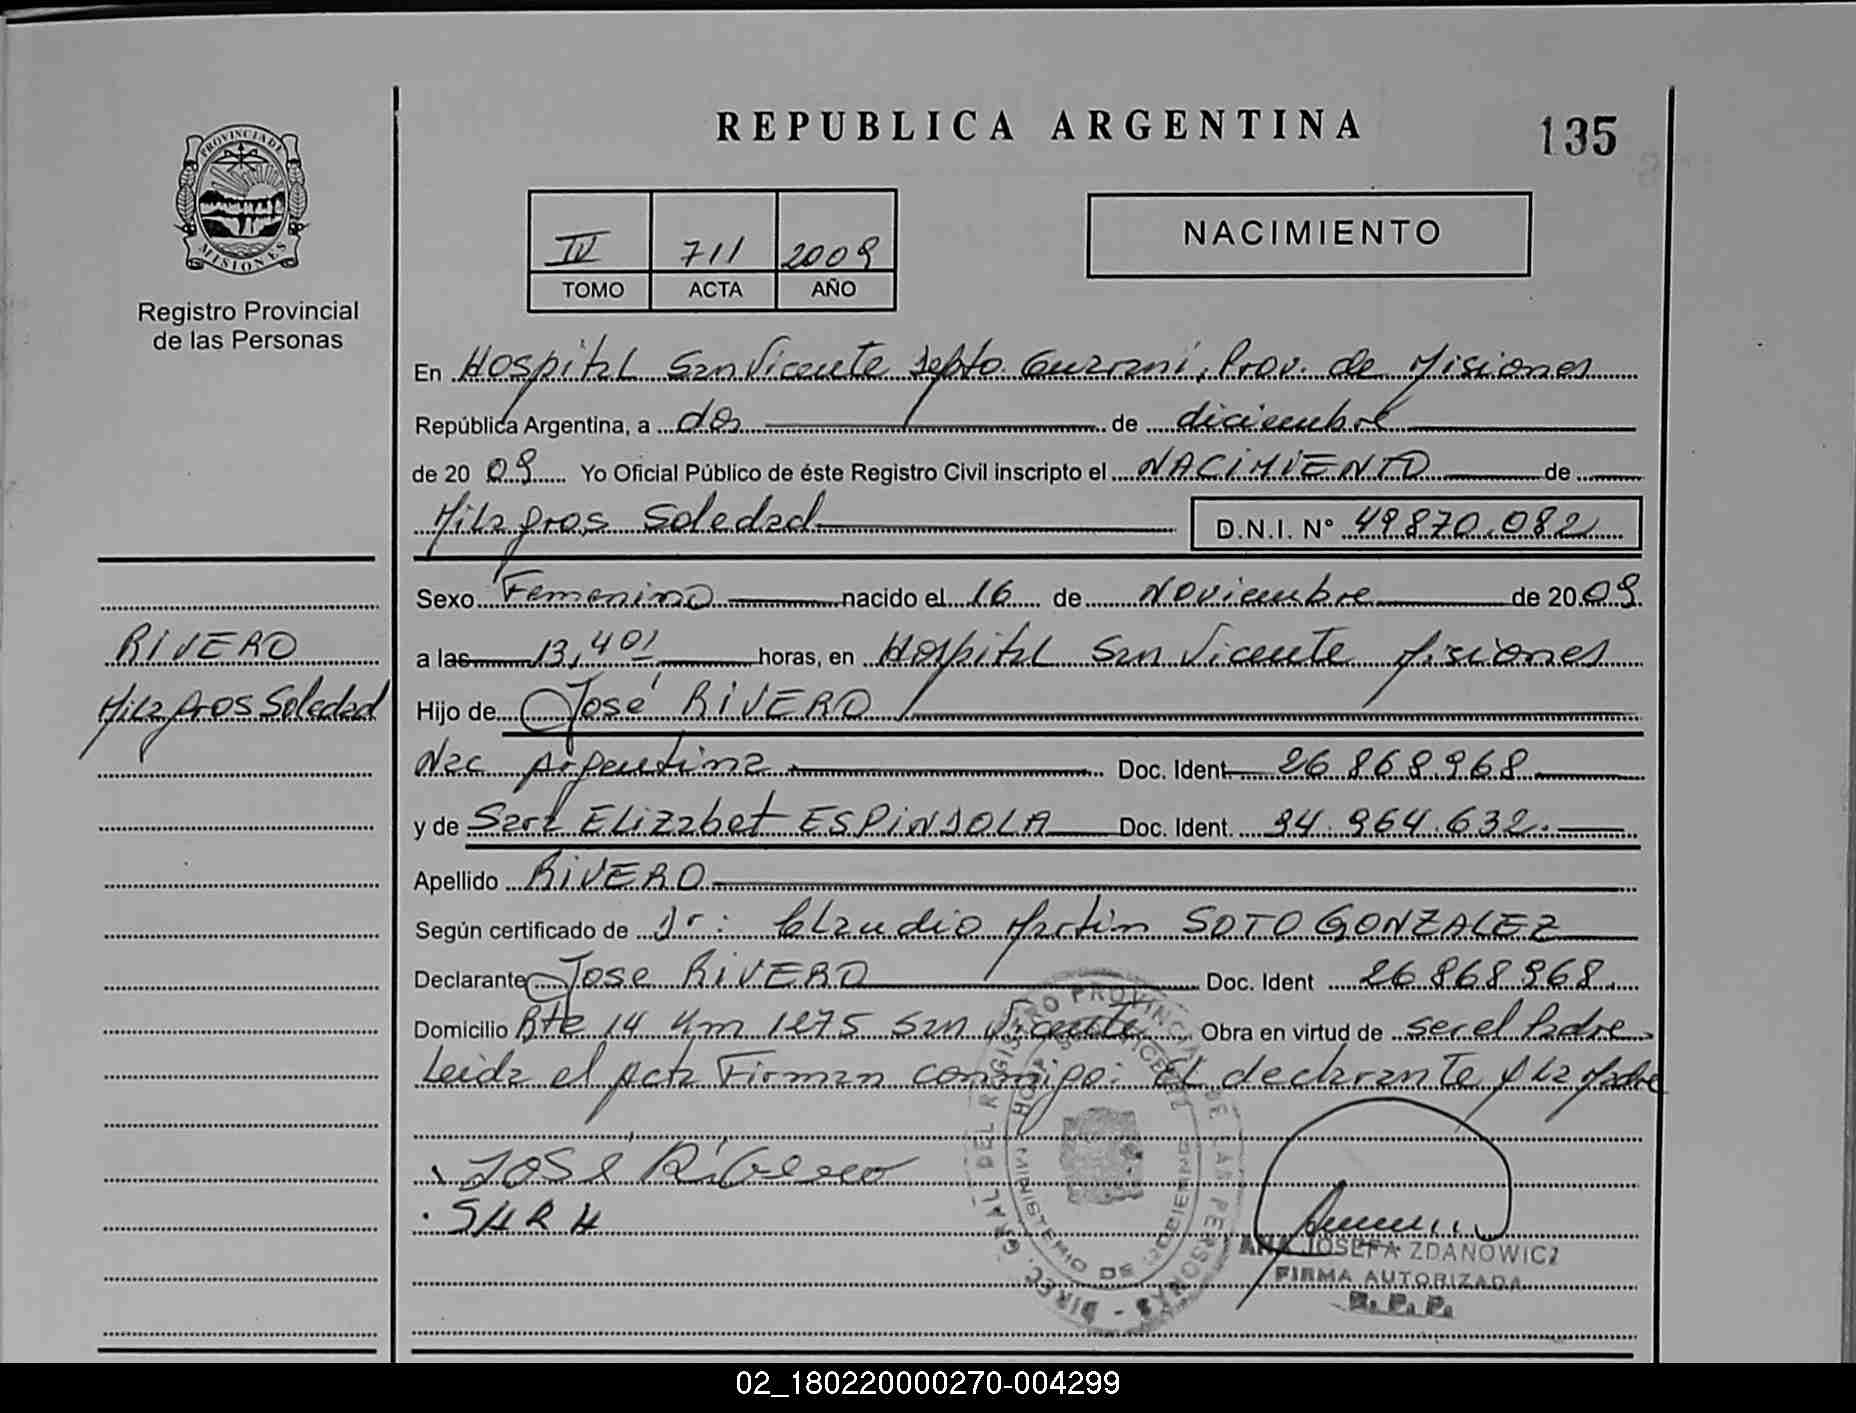 REPUBLICA ARGENTINA
135
PROVINCIA DE MISIONES
Registro Provincial
de las Personas
IV 711 2009
TOMO ACTA AÑO
NACIMIENTO
En Hospital San Vicente Depto. Guaraní, Prov. de Misiones
República Argentina, a dos de diciembre
de 20 09 Yo Oficial Público de éste Registro Civil inscripto el NACIMIENTO de
Milagros Soledad D.N.I. N° 49870.082
Sexo Femenino nacido el 16 de Noviembre de 20 09
RIVERO
a las 13,40' horas, en Hospital San Vicente Misiones
Milagros Soledad
Hijo de José RIVERO
Nac Argentina Doc. Ident 26 868.968
y de Sara Elizabet ESPINDOLA Doc. Ident. 94.964.632.
Apellido RIVERO
Según certificado de Dr: Claudio Martin SOTO GONZALEZ
Declarante Jose RIVERO Doc. Ident 26 868 968.
Domicilio Rta 14 Km 1275 San Vicente Obra en virtud de ser el Padre
Leida el Acta Firman conmigo: El declarante y La Madre
JOSÉ Rivero
SARA
DIREC. GRAL. DEL REGISTRO PROVINCIAL DE LAS PERSONAS
HOSP. SAN VICENTE
MINISTERIO DE GOBIERNO
ANA JOSEFA ZDANOWICZ
FIRMA AUTORIZADA
R. P. P.
02_180220000270-004299